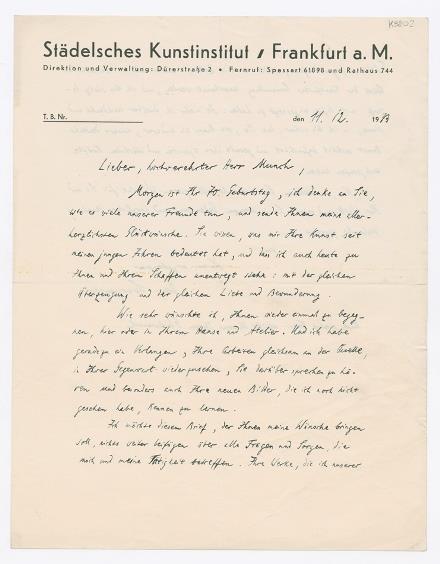 K3802
Städelsches Kunstinstitut / Frankfurt a. M.
Direktion und Verwaltung: Dürerstraße 2 • Fernruf: Spessart 61898 und Rathaus 744
T. B. Nr. den 11. 12. 19
Lieber, hochverehrter Herr Munch,
Morgen ist Ihr Geburtstag, ich denke an Sie,
wie es viele unserer Freunde tun, und sende Ihnen meine aller-
herzlichsten Glückwünsche. Sie wissen, was mir Ihre Kunst seit
meinen jungen Jahren bedeutet hat, und das ich auch heute zu
Ihnen und Ihrem Schaffen unentwegt stehe: mit der gleichen
Überzeugung und der gleichen Liebe und Bewunderung.
Wie sehr wünschte ich, Ihnen wieder einmal zu begeg-
nen, hier oder in Ihrem Hause und Atelier. Und ich habe
geradezu ein Verlangen, Ihre Arbeiten gleichsam an der Quelle,
in Ihrer Gegenwart wiederzusehen, Sie darüber sprechen zu hö-
ren und besonders auch Ihre neuen Bilder, die ich noch nicht
gesehen habe, kennen zu lernen.
Ich möchte diesem Brief, der Ihnen meine Wünsche bringen
soll, nichts weiter beifügen über alle Fragen und Sorgen, die
mich und meine Tätigkeit betreffen. Ihre Werke, die ich unserer